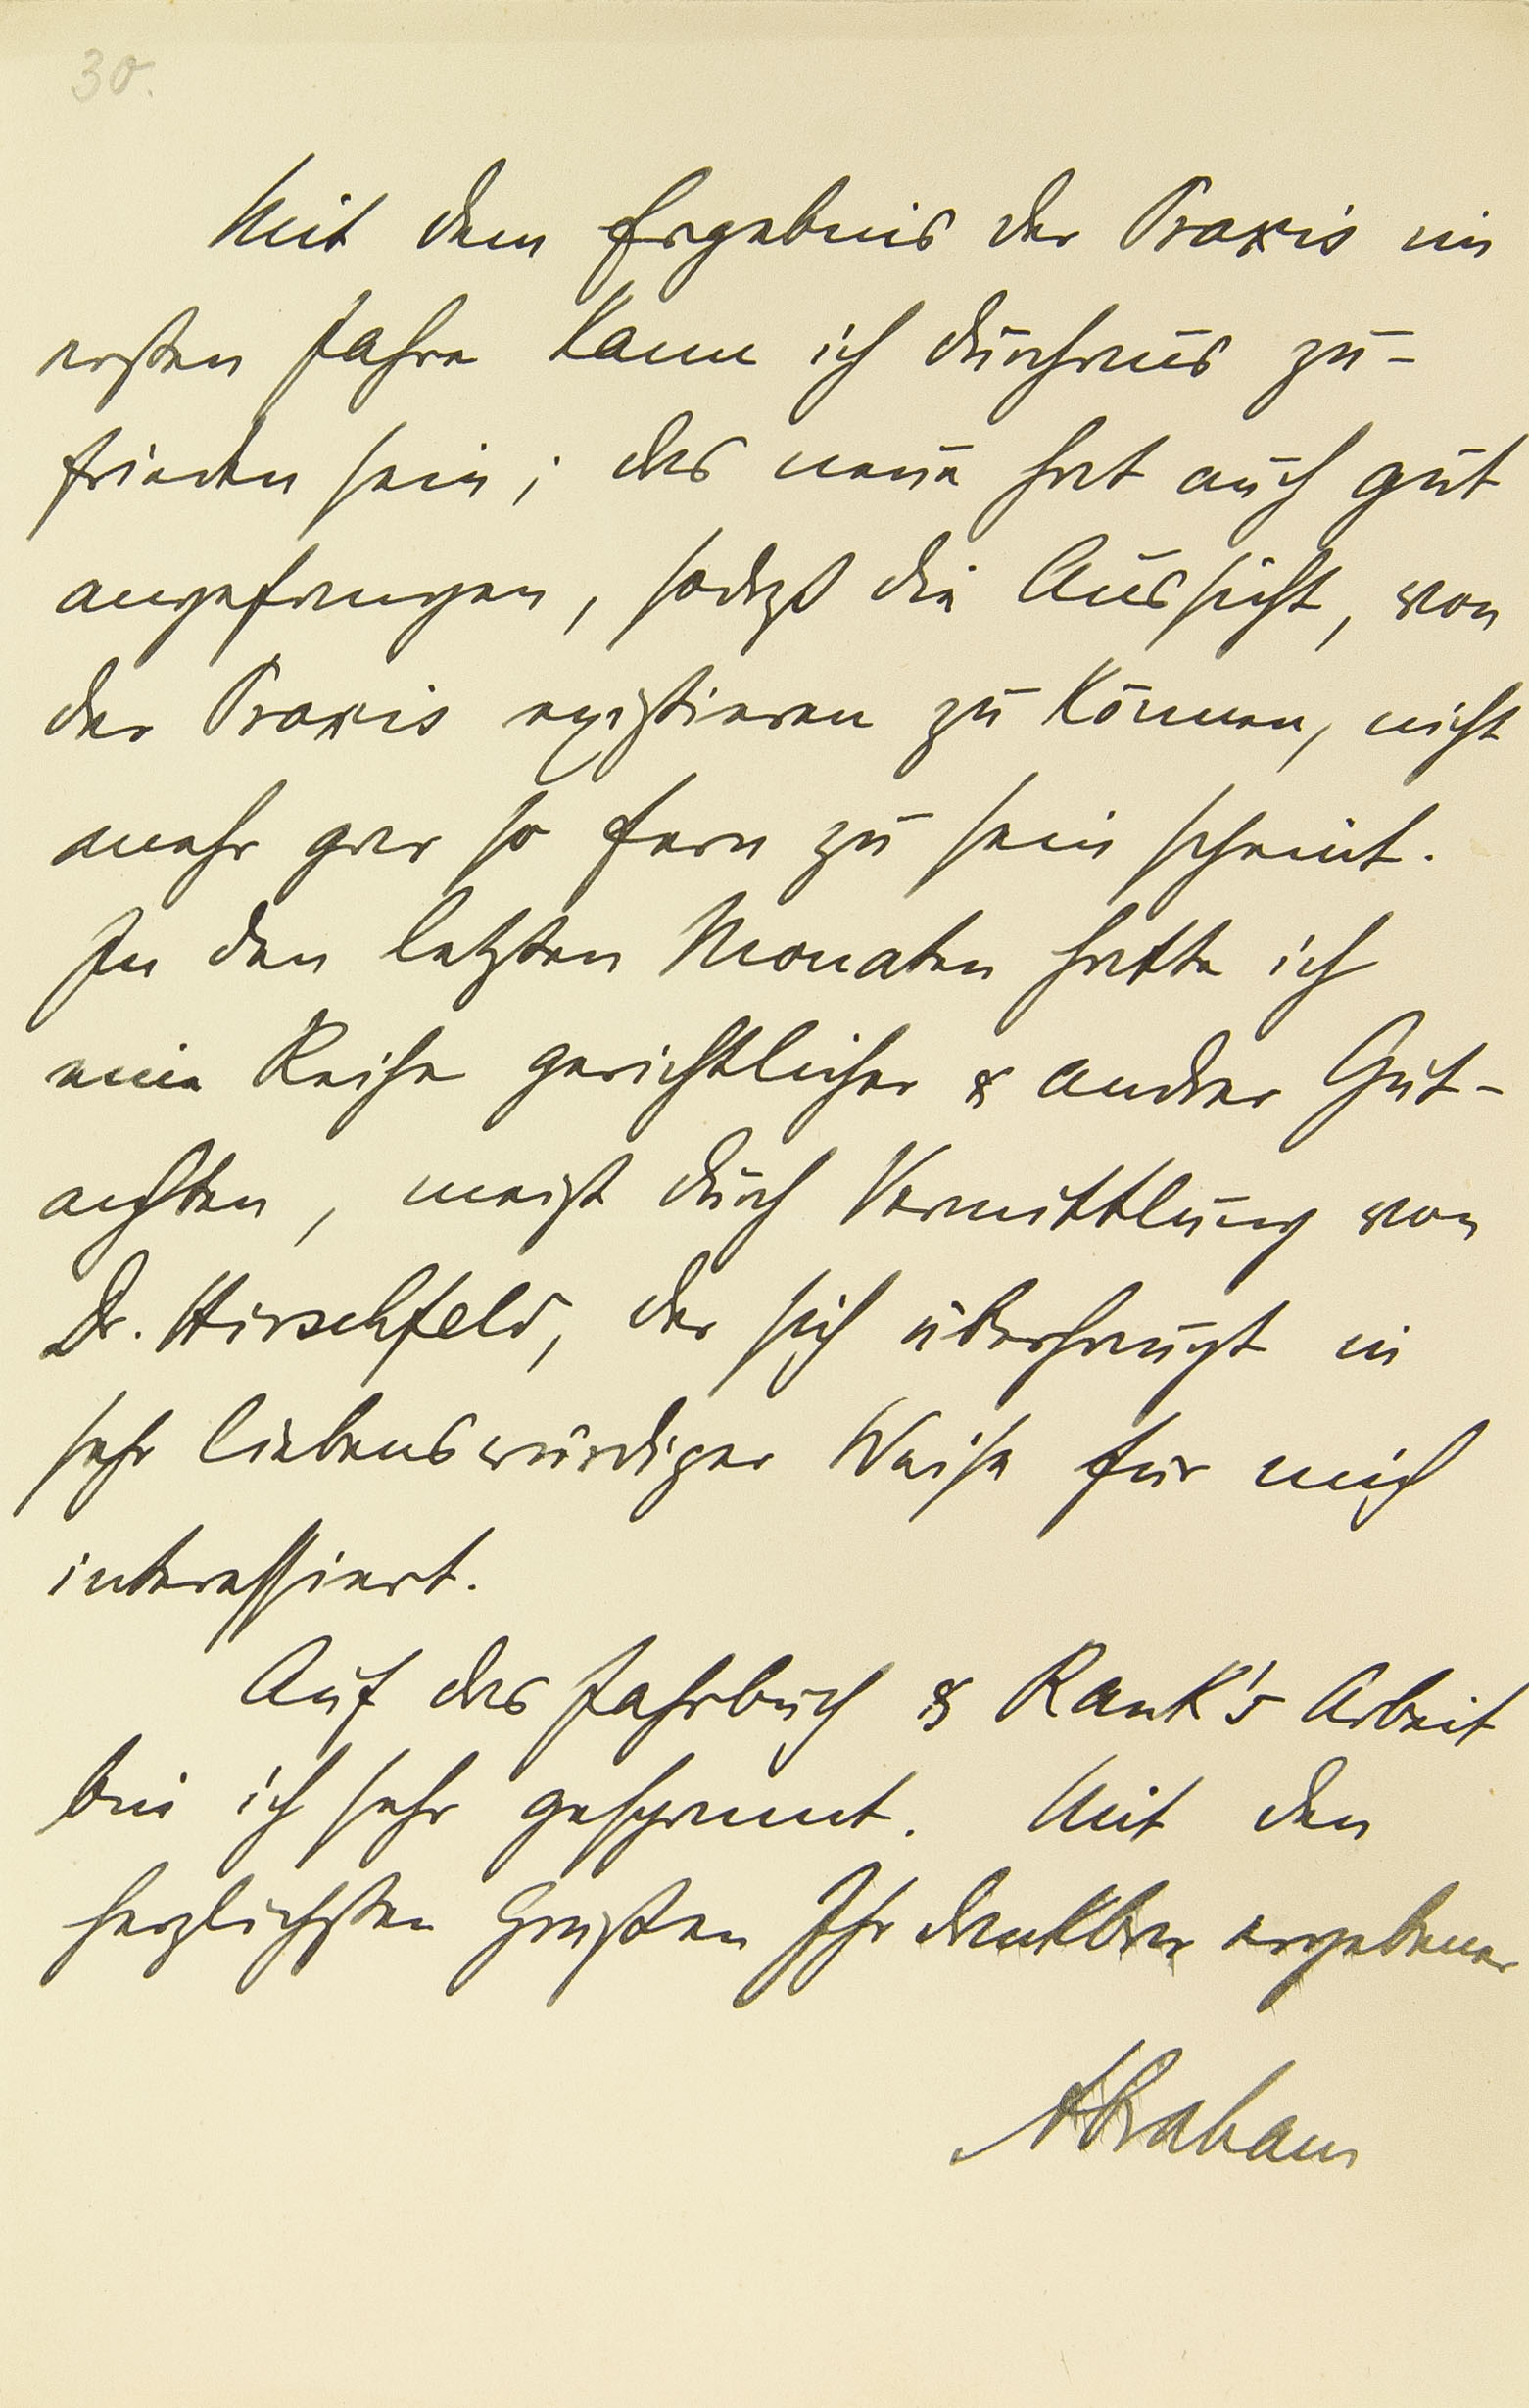 30.
Mit dem Ergebnis der Praxis im
ersten Jahre kann ich durchaus zu-
frieden sein; das neue hat auch gut
angefangen, sodaß die Aussicht, von
der Praxis existieren zu können, nicht
mehr gar so fern zu sein scheint.
In den letzten Monaten hatte ich
eine Reihe gerichtlicher & andrer Gut-
achten, meist durch Vermittlung von
Dr. Hirschfeld, der sich überhaupt in
sehr liebenswürdiger Weise für mich
interessiert.
Auf das Jahrbuch & Rank's Arbeit
bin ich sehr gespannt. Mit den
herzlichsten Grüßen Ihr dankbar ergebener
Abraham